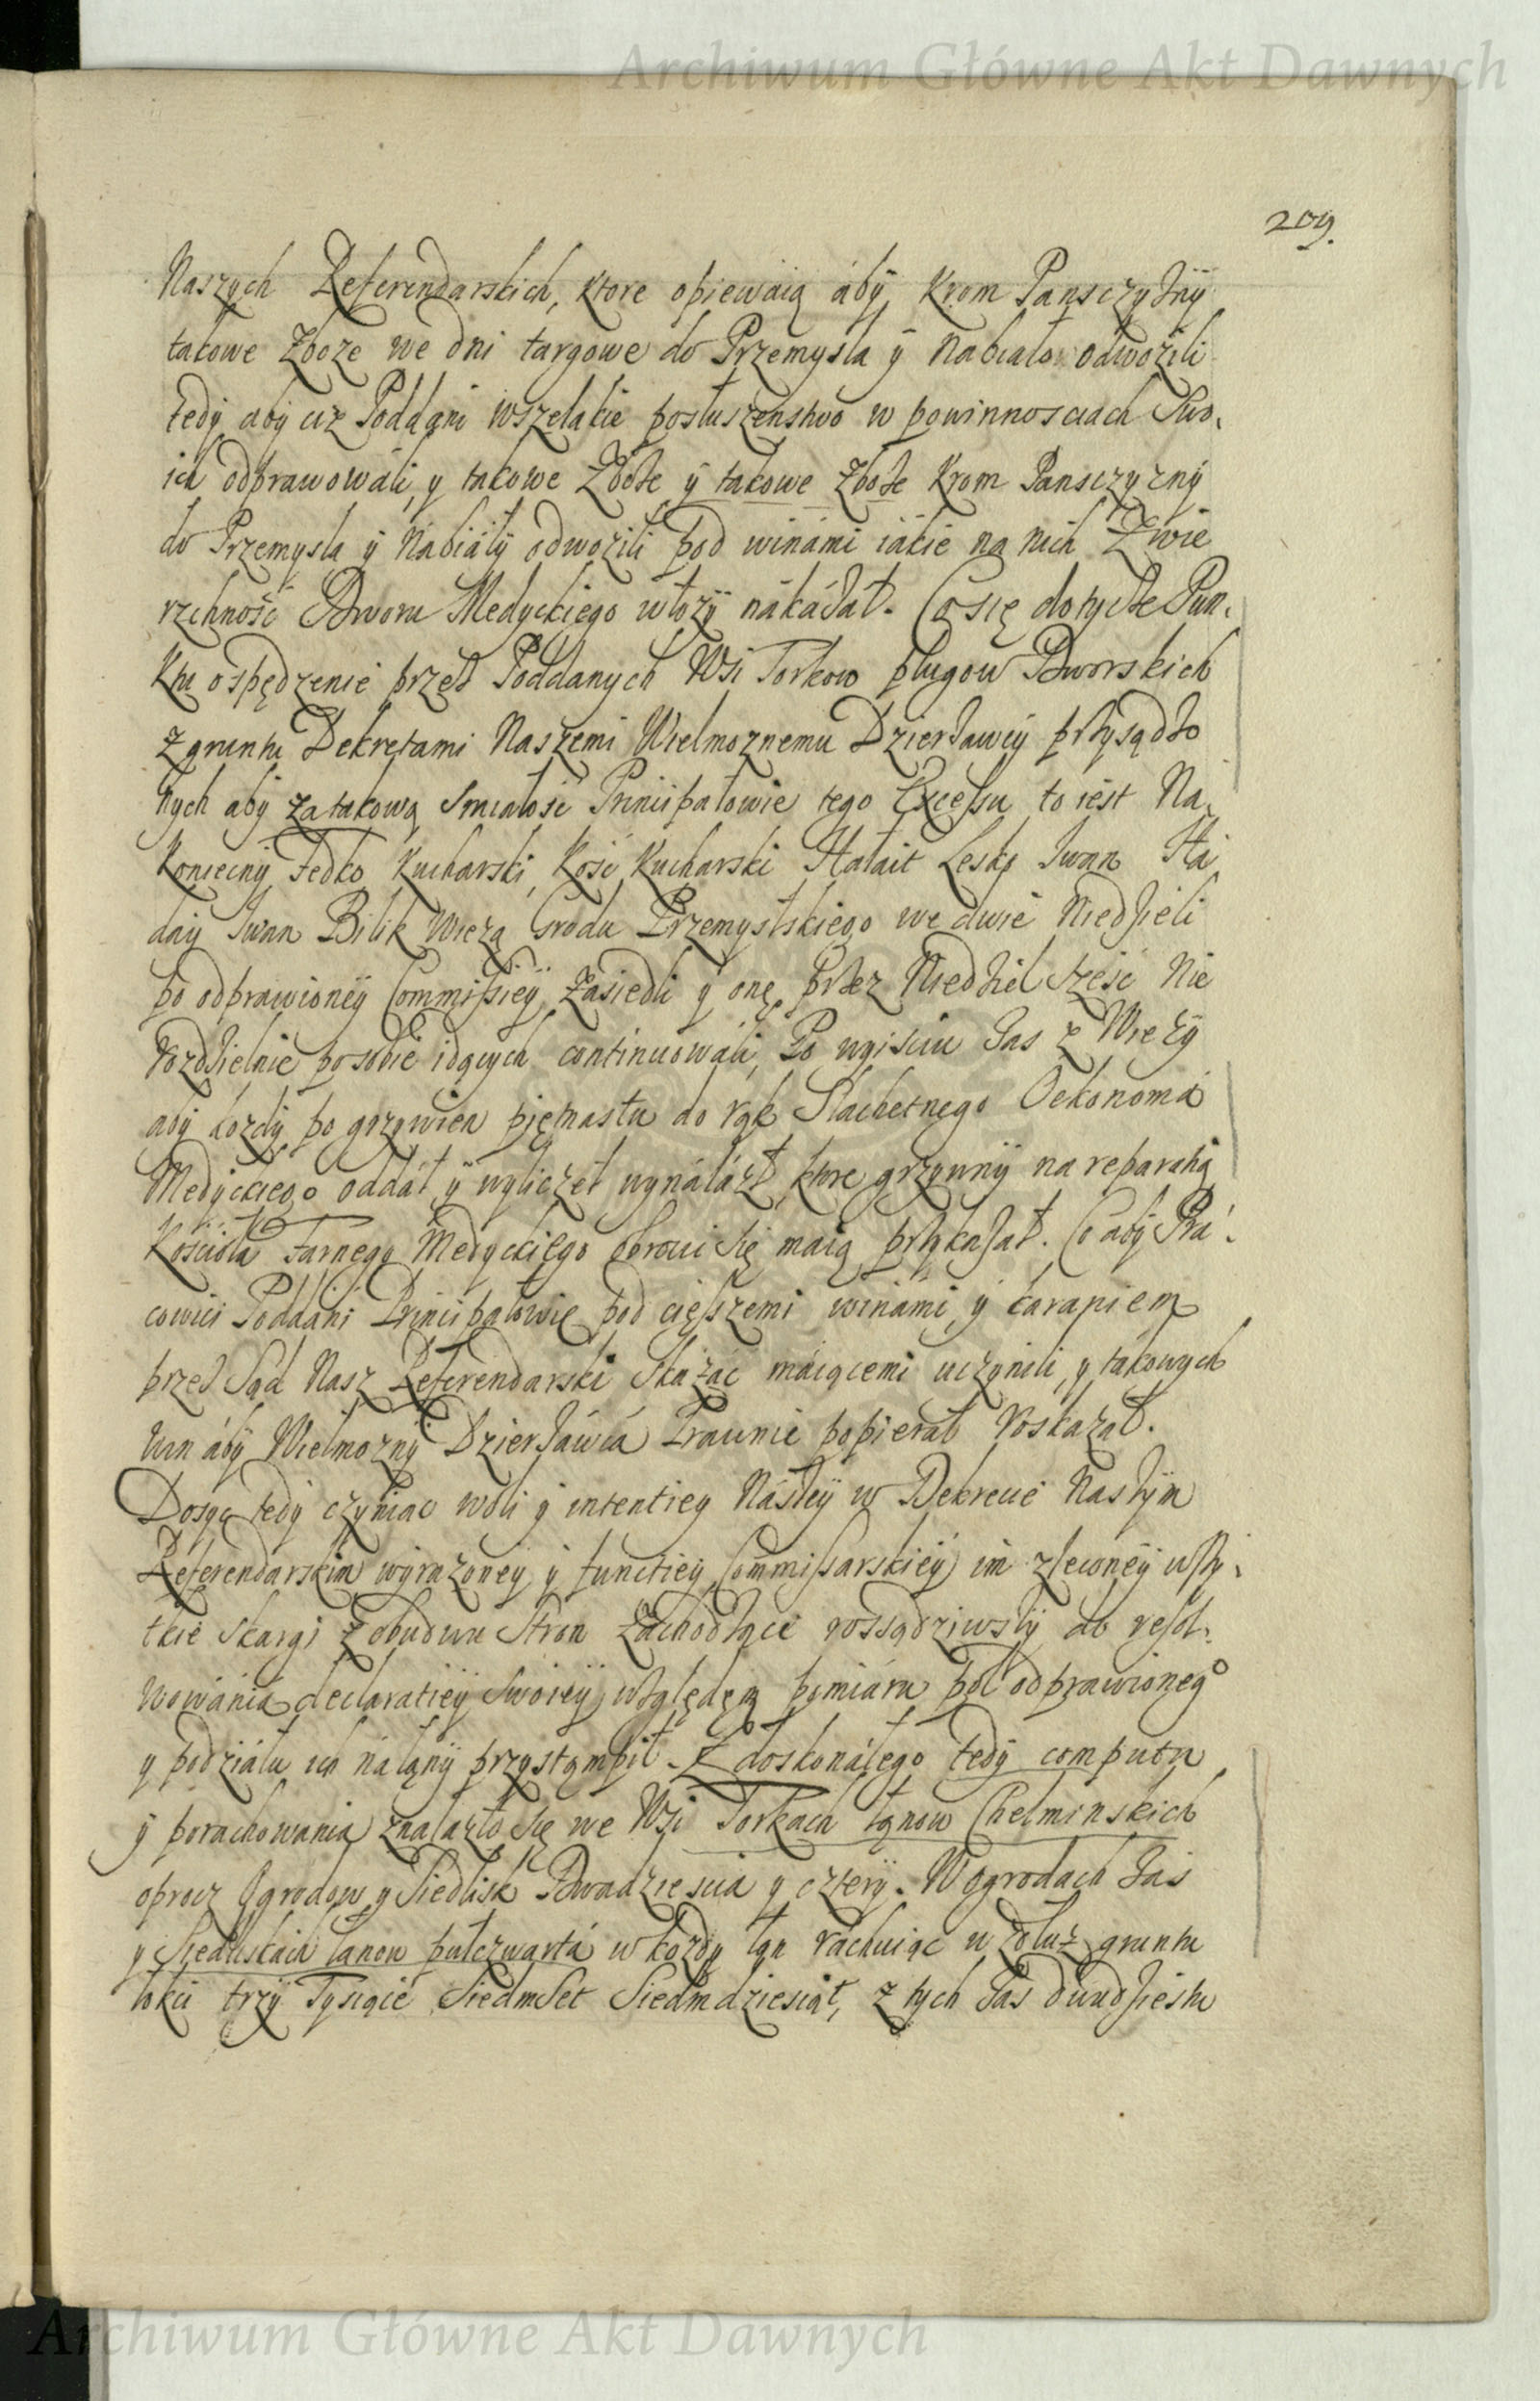 Archiwum Główne Akt Dawnych
209.
Naszych Referendarskich, ktore opiewaią aby krom Pansczyżny
takowe Zboze we dni targowe do Przemysla y Nabiało odwozili
tedy aby ciz Poddani wszelakie posłuszenstwo w powinnosciach Swo,
ich odprawowali, y takowe Zboże y takowe zboże krom Pansczyzny
do Przemysla y Nabiały odwozili pod winami iakie na nich Zwie
rzchność Dworu Medyckiego włozy nakażał. Co się dotycże Pun,
ktu ospędzenie przeż Poddanych Wsi Torkow plugow Dworskich
z gruntu Dekretami Naszemi Wielmoznemu Dzierżawcy przysądżo
nych aby za takową smiałość Principałowie tego Excessu to iest Na,
konieczny Fedko Kucharski, Kość Kucharski Hałait Lesko Iwan Ha
day Iwan Bilik Wiezą Grodu Przemyslskiego we dwie Niedzieli
po odprawioney Commissiey Zasiedli y onę przez Niedziel sześć Nie
rozdzielnie po sobie idących continuowali, Po wyiściu zas z Wieży
aby kozdy po grzywien piętnastu do rąk Slachetnego Oekonoma
Medyckiego oddał y wyliczeł wynalazł, ktore grzywny na reparatią
Kościoła Farnego Medyckiego obrocić się maią przykazał. Co aby Pra,
cowici Poddani Principałowie pod cięszemi winami y karaniem
przez Sąd Nasz Referendarski skazać maiącemi uczynili, y takowych
win aby Wielmozny Dzierżawca Prawnie popierał roskazał.
Dosyc tedy czyniac woli y intentiey Naszey w Dekrecie Naszym
Referendarskim wyrazoney y functiey Commissarskiey im zleconey wszy,
tkie skargi z obudwu stron zachodzące rossądziwszy do resol,
wowania declaratiey swoiey względem pomiaru pol odprawionego
y podziału ich na łany przystąmpił. Z doskonałego tedy computu
y porachowania znalazło się we Wsi Torkach łanow Chełminskich
oprocz Ogrodow y Siedlisk Dwadziescia y cztery. W ogrodach zas
y Siedliskach łanow pułczwarta w kozdy łan rachuiąc w zdłuż gruntu
łokci trzy Tysiące Siedmset Siedmdziesiąt, z tych zas dwudziestu
Archiwum Główne Akt Dawnych